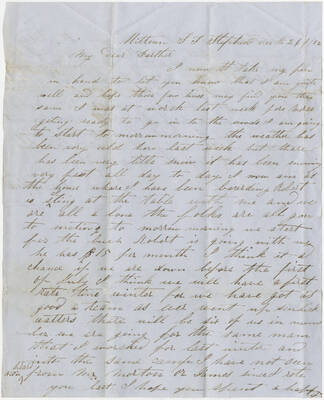 My Dear Farther
I now take my pen
in hand to let you know that I am quite
well and hope these few lines may find you the
same I was at work last week for
getting ready to go in to the woods I am going
to start to morrow morning the weather has
been very cold here last week but there
has been very little snow it has been snowing
very fast all day to day I now am at
the house where I have been boarding Robert
is siting at the table with me and we
are all a lone the folks are all gon
to meting to morrow morning we start
for the bush Robert is going with me
he has $15 per month I think it a
chance if we are down before the first
of July I think we will have a first
rate time winter for we have got as
good a team as ever went up
walters there will be six of us in num
ber we are going for the same man
that I worked for last winter and
with the same campe I have not seen
from Mr Morton or James since I rote
you last I hope you spent a happy